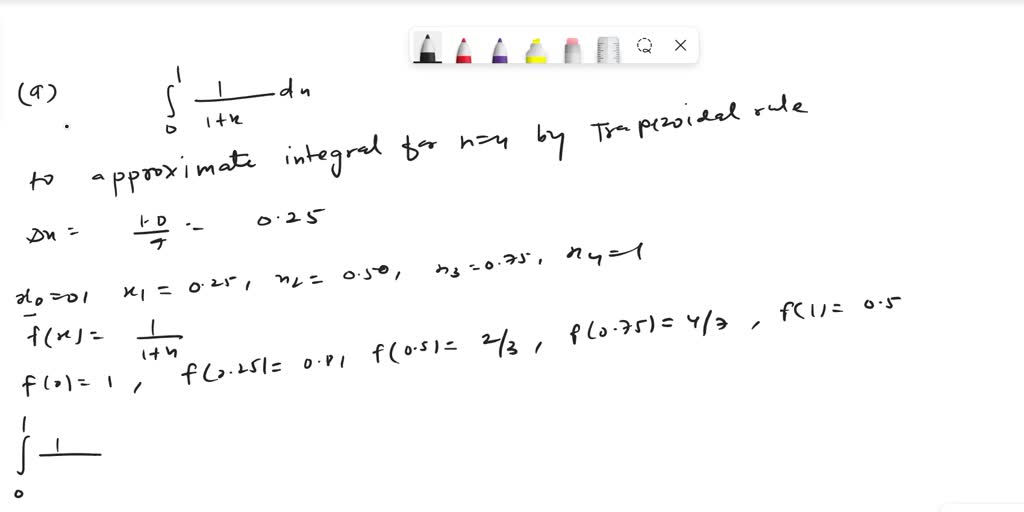 (a) ∫₀¹ 1/(1+x) dx
to approximate integral for n=4 by Trapezoidal rule
Δx = (1-0)/4 = 0.25
x₀=0, x₁ = 0.25, x₂ = 0.50, x₃ = 0.75, x₄ = 1
f(x) = 1/(1+x)
f(0) = 1, f(0.25) = 0.8, f(0.5) = 2/3, f(0.75) = 4/7, f(1) = 0.5
∫₀¹ 1/